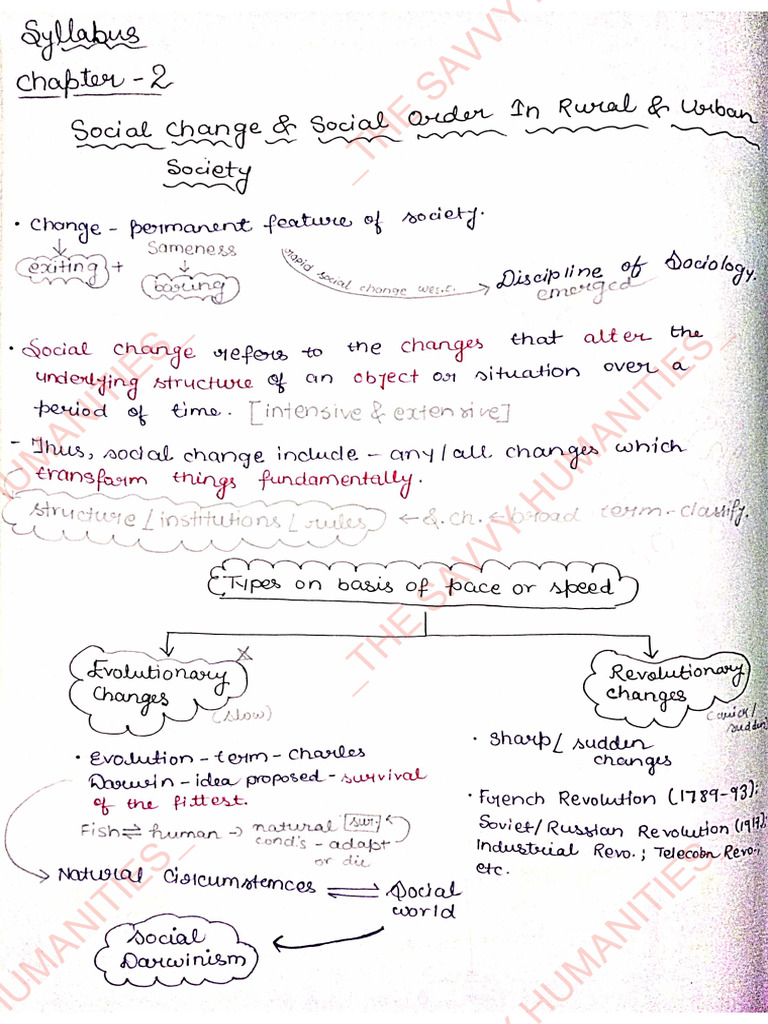 Syllabus
Chapter - 2
Social Change & Social Order In Rural & Urban
Society
• Change - permanent feature of society.
exiting + Sameness
boring
rapid social change wes.c. → Discipline of Sociology.
emerged
• Social change refers to the changes that alter the
underlying structure of an object or situation over a
period of time. [intensive & extensive]
- Thus, social change include - any/all changes which
transform things fundamentally.
structure/institutions/rules ← S.ch. ← broad term - classify.
Types on basis of pace or speed
Evolutionary
Changes
(slow)
• Evolution - term - Charles
Darwin - idea proposed - survival
of the fittest.
Fish ⇌ human → natural sur.
cond's - adapt
or die
Natural Circumstences ⇌ Social
world
Social
Darwinism
Revolutionary
changes
(quick/
sudden)
• Sharp/ sudden
changes
• French Revolution (1789-93);
Soviet/Russian Revolution (1917);
Industrial Revo.; Telecobn Revo.;
etc.
_THE SAVVY HUMANITIES_
_THE SAVVY HUMANITIES_
HUMANITIES_
HUMANITIES_